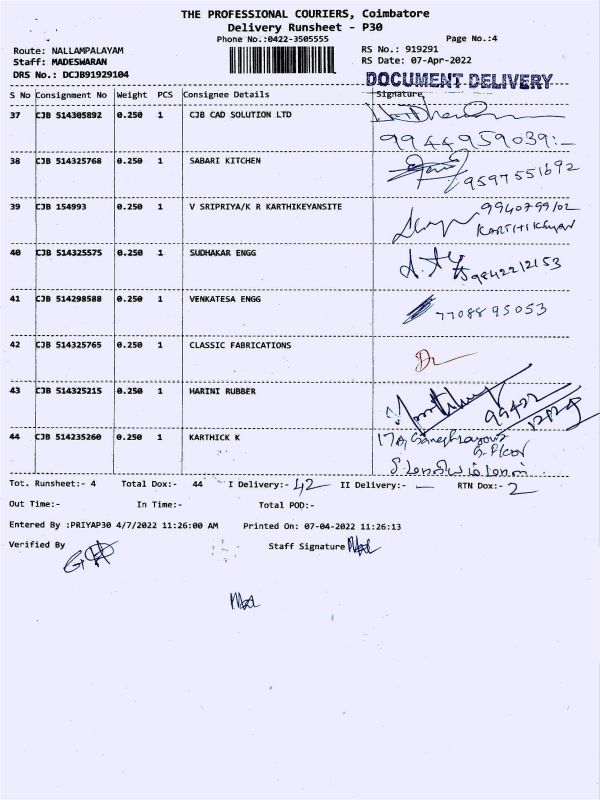 THE PROFESSIONAL COURIERS, Coimbatore
Delivery Runsheet - P30
Phone No.:0422-3505555
Page No.:4
Route: NALLAMPALAYAM
RS No.: 919291
Staff: MADESWARAN
RS Date: 07-Apr-2022
DRS No.: DCJB91929104
DOCUMENT DELIVERY
S No Consignment No Weight PCS Consignee Details Signature
37 CJB 514305892 0.250 1 CJB CAD SOLUTION LTD
9944959039:-
38 CJB 514325768 0.250 1 SABARI KITCHEN
9597551692
39 CJB 154993 0.250 1 V SRIPRIYA/K R KARTHIKEYANSITE
9940799102
KARTHIKEYAN
40 CJB 514325575 0.250 1 SUDHAKAR ENGG
9842212153
41 CJB 514298588 0.250 1 VENKATESA ENGG
7708895053
42 CJB 514325765 0.250 1 CLASSIC FABRICATIONS
43 CJB 514325215 0.250 1 HARINI RUBBER
99422
44 CJB 514235260 0.250 1 KARTHICK K
G. Floor
Tot. Runsheet:- 4 Total Dox:- 44 I Delivery:- 42 II Delivery:- — RTN Dox:- 2
Out Time:- In Time:- Total POD:-
Entered By :PRIYAP30 4/7/2022 11:26:00 AM Printed On: 07-04-2022 11:26:13
Verified By Staff Signature